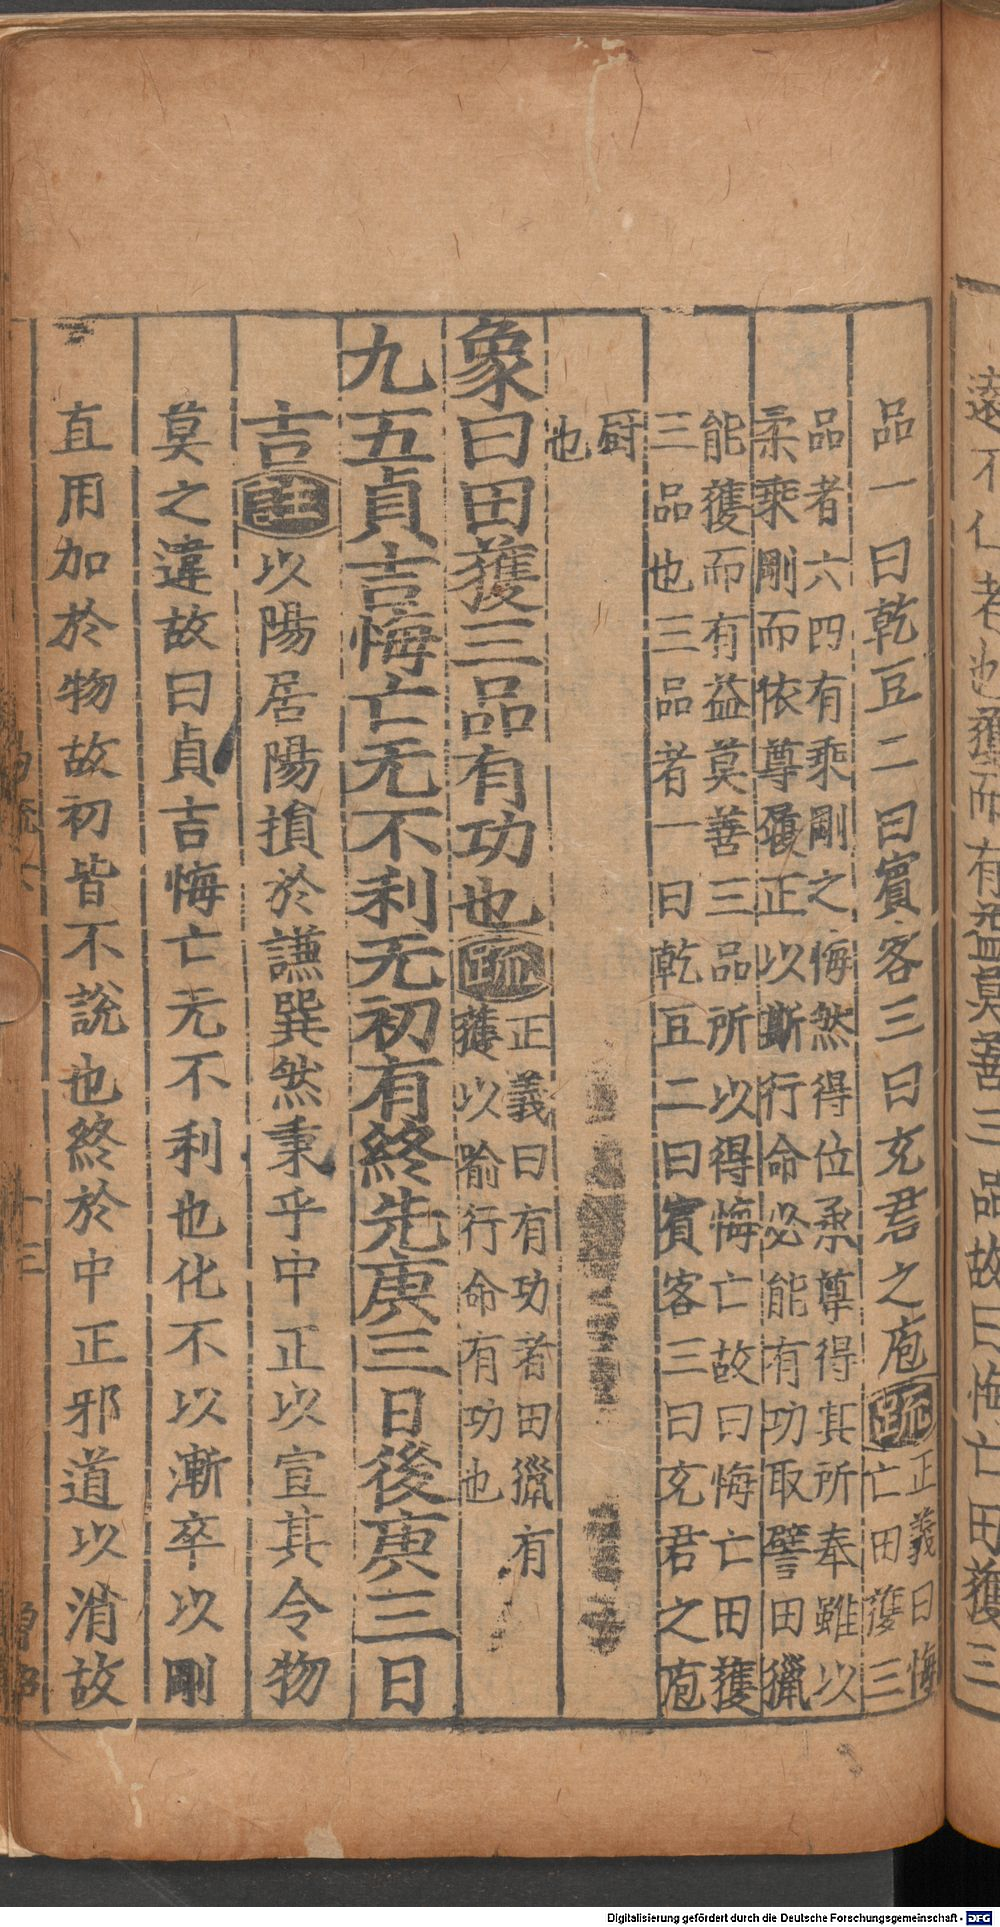 遠不仁者也獲而有益莫善三品故曰悔亡田獲三
品一曰乾豆二曰賓客三曰充君之庖疏正義曰悔
亡田獲三
品者六四有乘剛之悔然得位承尊得其所奉雖以
柔乘剛而依尊履正以斯行命必能有功取譬田獵
能獲而有益莫善三品所以得悔亡故曰悔亡田獲
三品也三品者一曰乾豆二曰賓客三曰充君之庖
厨
也
象曰田獲三品有功也疏正義曰有功者田獵有
獲以喻行命有功也
九五貞吉悔亡无不利无初有終先庚三日後庚三日
吉註以陽居陽損於謙巽然秉乎中正以宣其令物
莫之違故曰貞吉悔亡无不利也化不以漸卒以剛
直用加於物故初皆不說也終於中正邪道以消故
十三
Digitalisierung gefördert durch die Deutsche Forschungsgemeinschaft - DFG